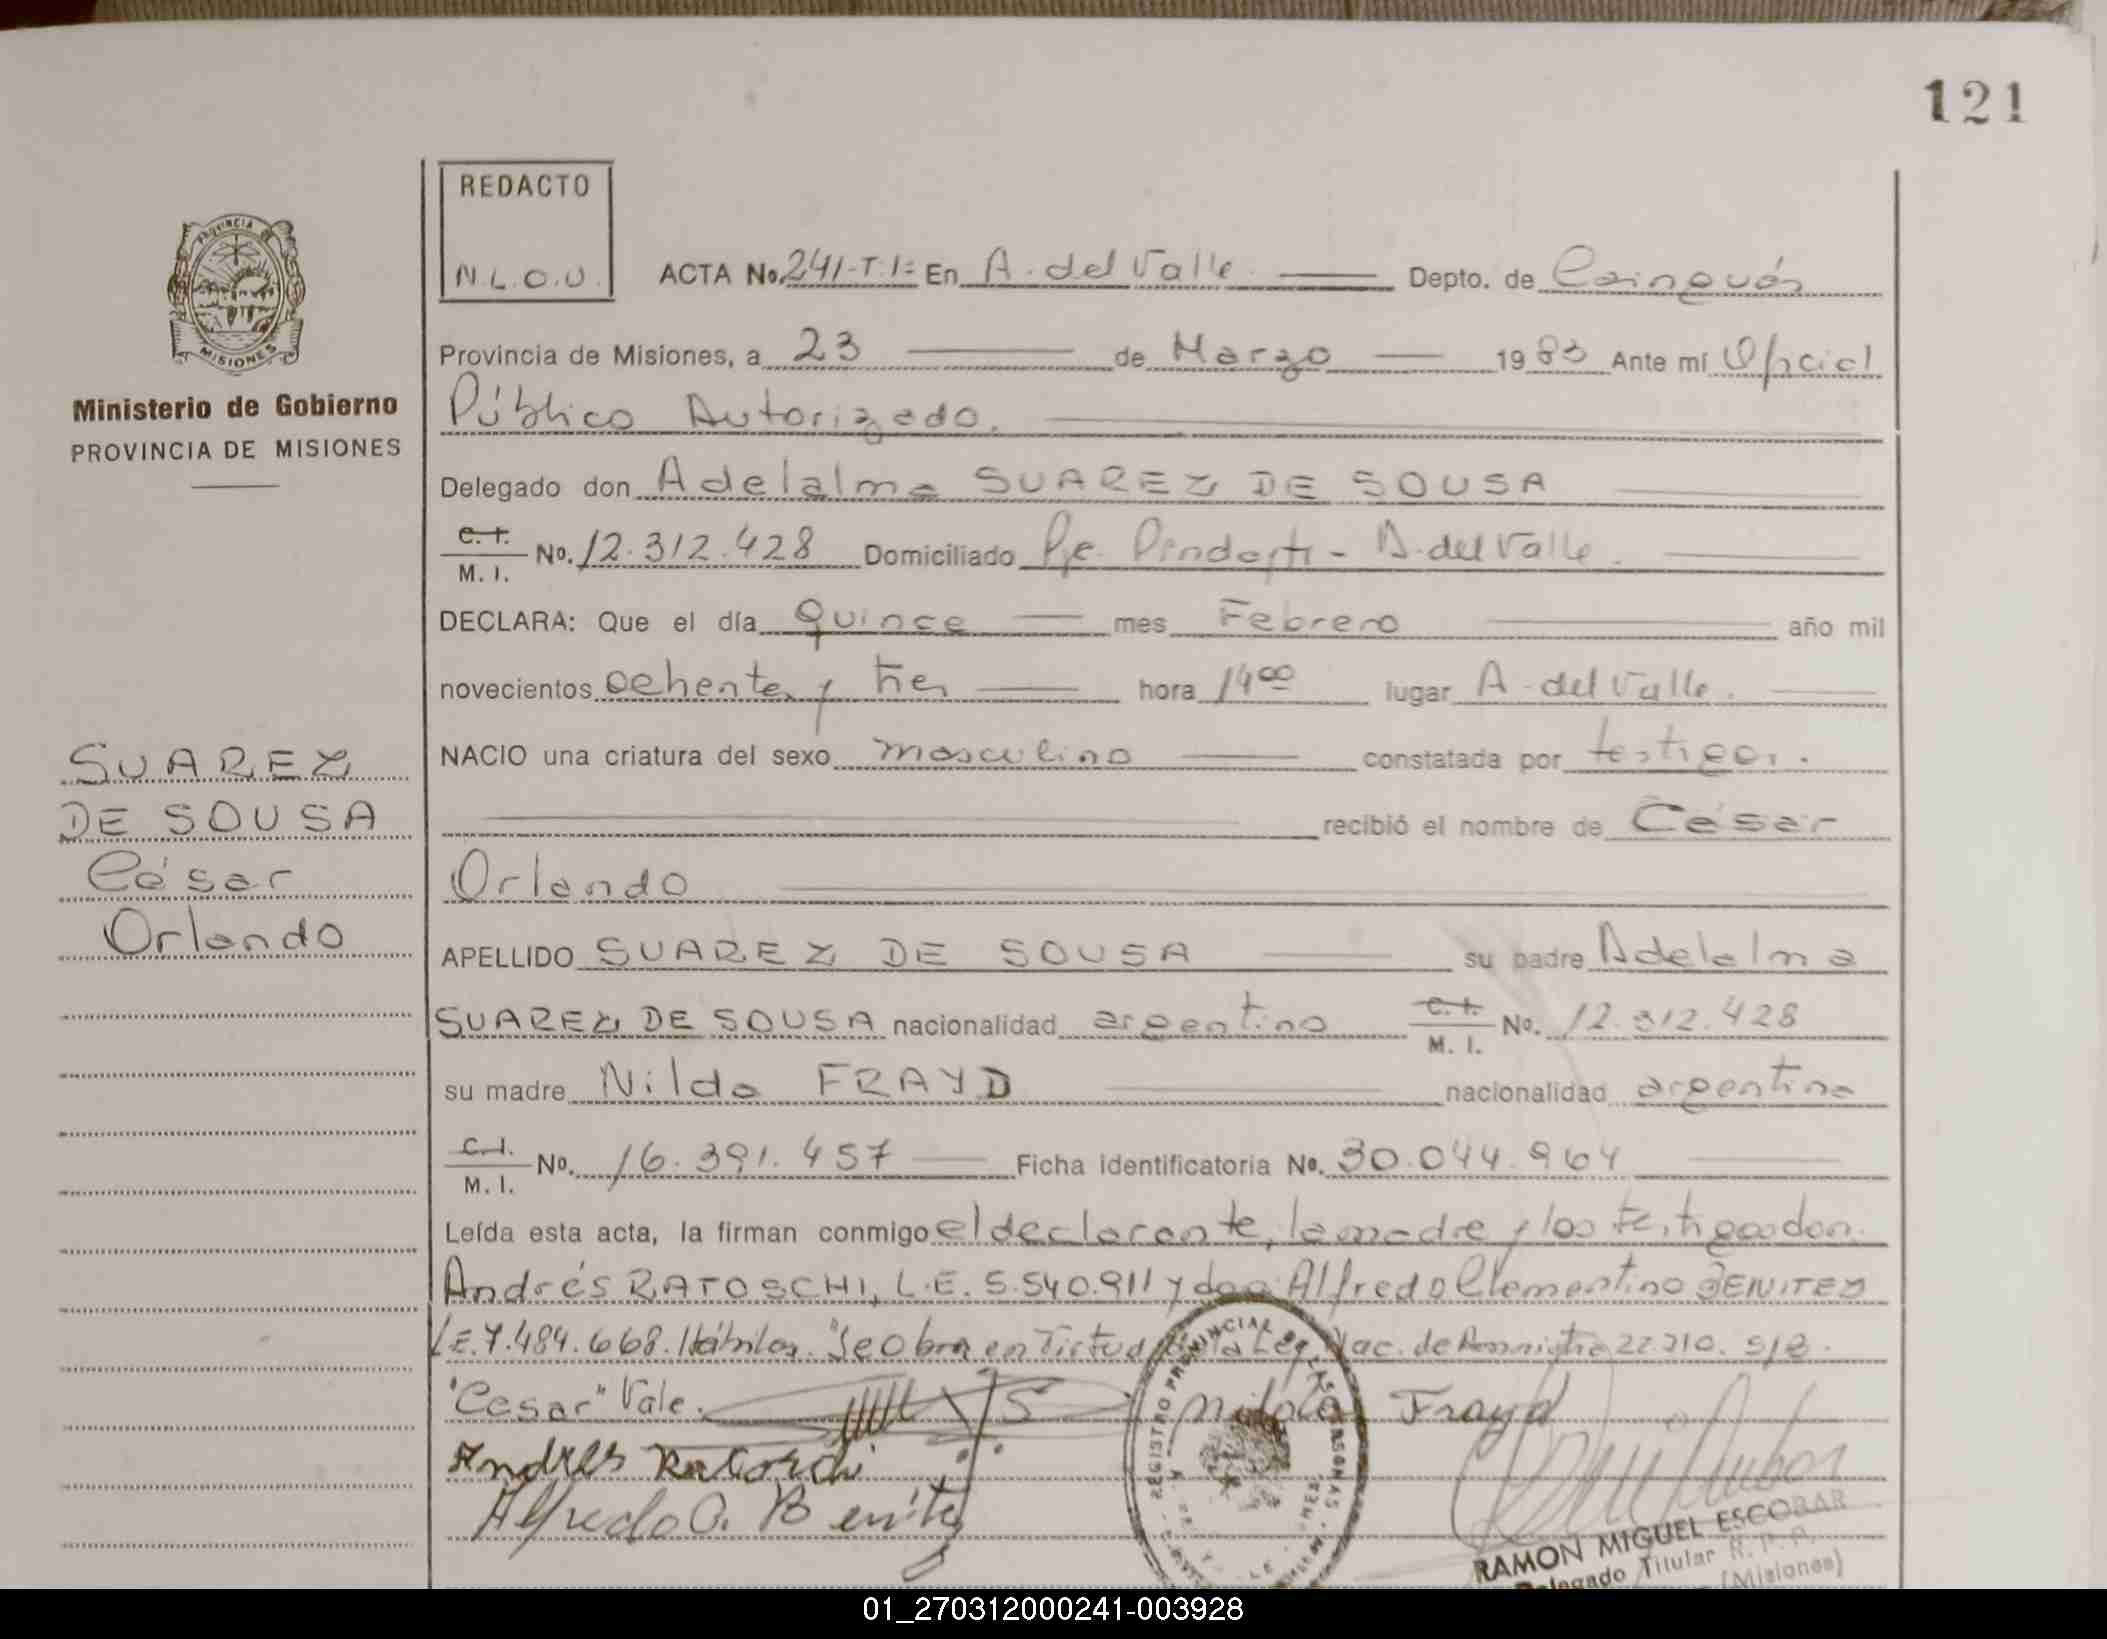 121
REDACTO
N.L.O.U.
PROVINCIA DE
MISIONES
Ministerio de Gobierno
PROVINCIA DE MISIONES
ACTA No. 241-T.I= En A. del Valle Depto. de Cainguás
Provincia de Misiones, a 23 de Marzo 1983 Ante mí Oficial
Público Autorizado.
Delegado don Adelalma SUAREZ DE SOUSA
C. I. M. I. No. 12.312.428 Domiciliado Pje. A. del Valle.
DECLARA: Que el día Quince mes Febrero año mil
novecientos ochenta y tres hora 14oo lugar A. del Valle.
NACIO una criatura del sexo masculino constatada por testigos.
recibió el nombre de César
Orlando
APELLIDO SUAREZ DE SOUSA su padre Adelalma
SUAREZ DE SOUSA nacionalidad argentino C. I. M. I. No. 12.312.428
su madre Nilda FRAYD nacionalidad argentina
C. I. M. I. No. 16.391.457 Ficha identificatoria No. 30.044.964
Leída esta acta, la firman conmigo el declarante, la madre y los testigos don
Andrés RATOSCHI, L.E. 5.540.911 y don Alfredo Clementino BENITEZ
L.E. 7.484.668. Hábiles. Se obra en Virtud de la Ley Nac. de Amnistía 22.210. S/B.
"Cesar" Vale.
SUAREZ
DE SOUSA
César
Orlando
Frayd
Andres
Alfredo C. Benitez
REGISTRO PROVINCIAL DE LAS PERSONAS
RAMON MIGUEL ESCOBAR
Delegado Titular R. P. P.
(Misiones)
01_270312000241-003928